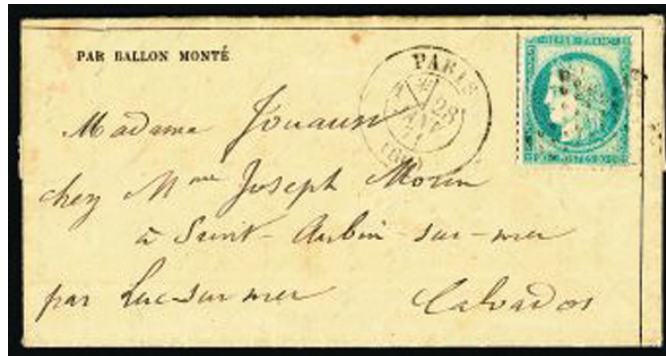 PAR BALLON MONTÉ
PARIS
28
JANV
71
(60)
REPUB FRANC
Madame Jouaust
chez Mme Joseph Morin
à Saint-Aubin-sur-mer
par Luc-sur-mer Calvados